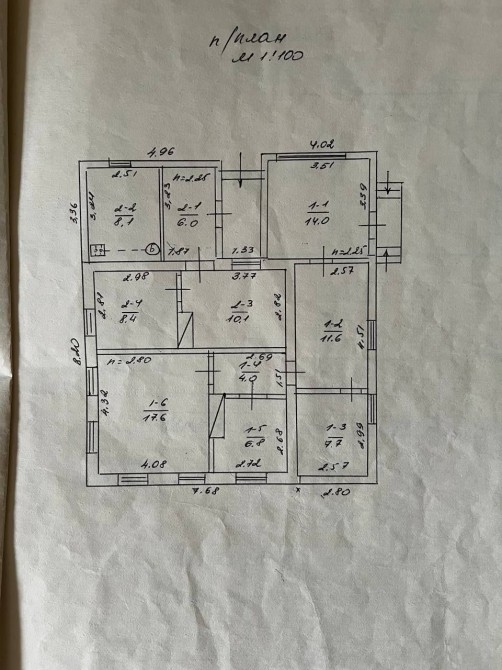 п/план
М 1:100
4.96
4.02
2.51
h=2.25
3.51
3.36
3.24
2-2
8.1
3.23
2-1
6.0
1-1
14.0
3.39
Б
1.87
1.33
h=2.25
2.98
3.77
2.57
2.81
2-4
8.4
2-3
10.1
2.82
1-2
11.6
4.51
8.20
h=2.80
2.69
1-4
4.0
1.51
4.32
1-6
17.6
1-5
6.8
2.68
1-3
7.7
2.99
4.08
2.72
2.57
7.68
x
2.80